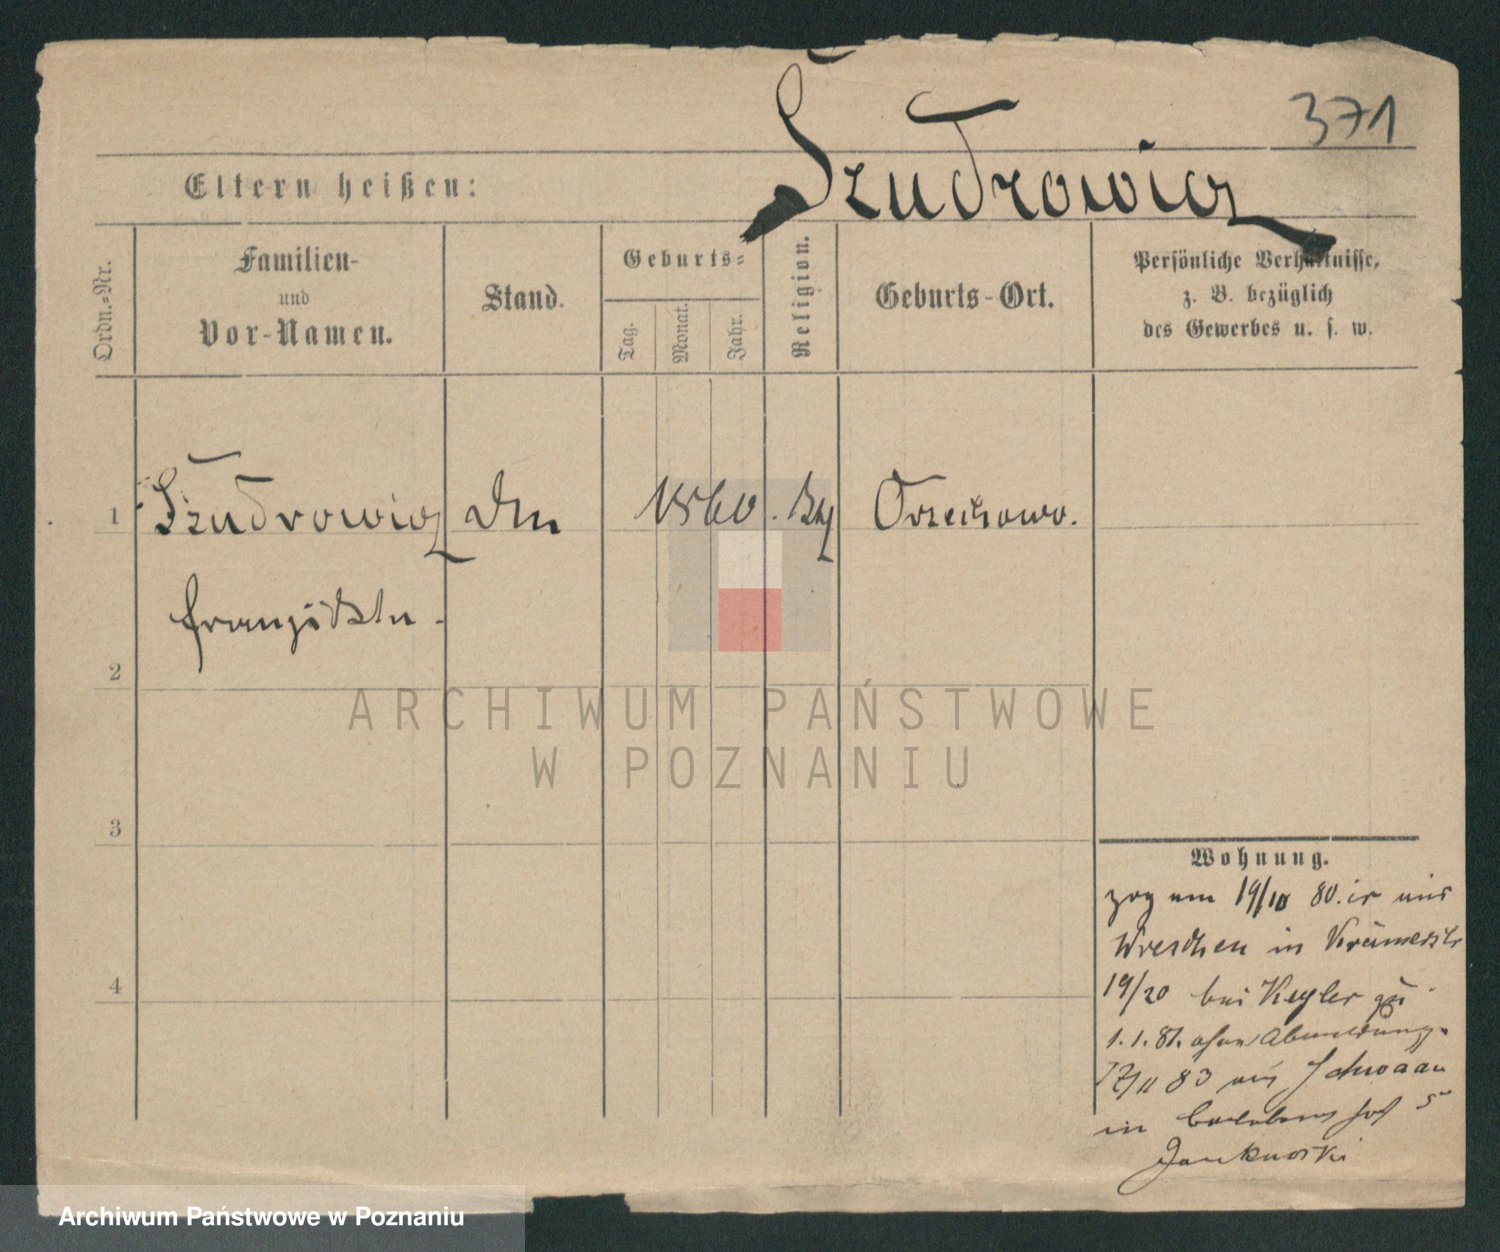 371
Szudrowicz
Eltern heißen:
Ordn.-Nr.
Familien-
und
Vor-Namen.
Stand.
Geburts-
Tag.
Monat.
Jahr.
Religion.
Geburts-Ort.
Persönliche Verhältnisse,
z. B. bezüglich
des Gewerbes u. s. w.
1 Szudrowicz 1860. Orzechowo.
Franziska
2
3
4
Wohnung.
zog am 19/10 80. ir aus
Wreschen in Krämerstr
19/20 bei Kegler zu
1. 1. 81. ohne Abmeldung.
83 aus Schwaan
in 5
Jankowski
ARCHIWUM PAŃSTWOWE
W POZNANIU
Archiwum Państwowe w Poznaniu